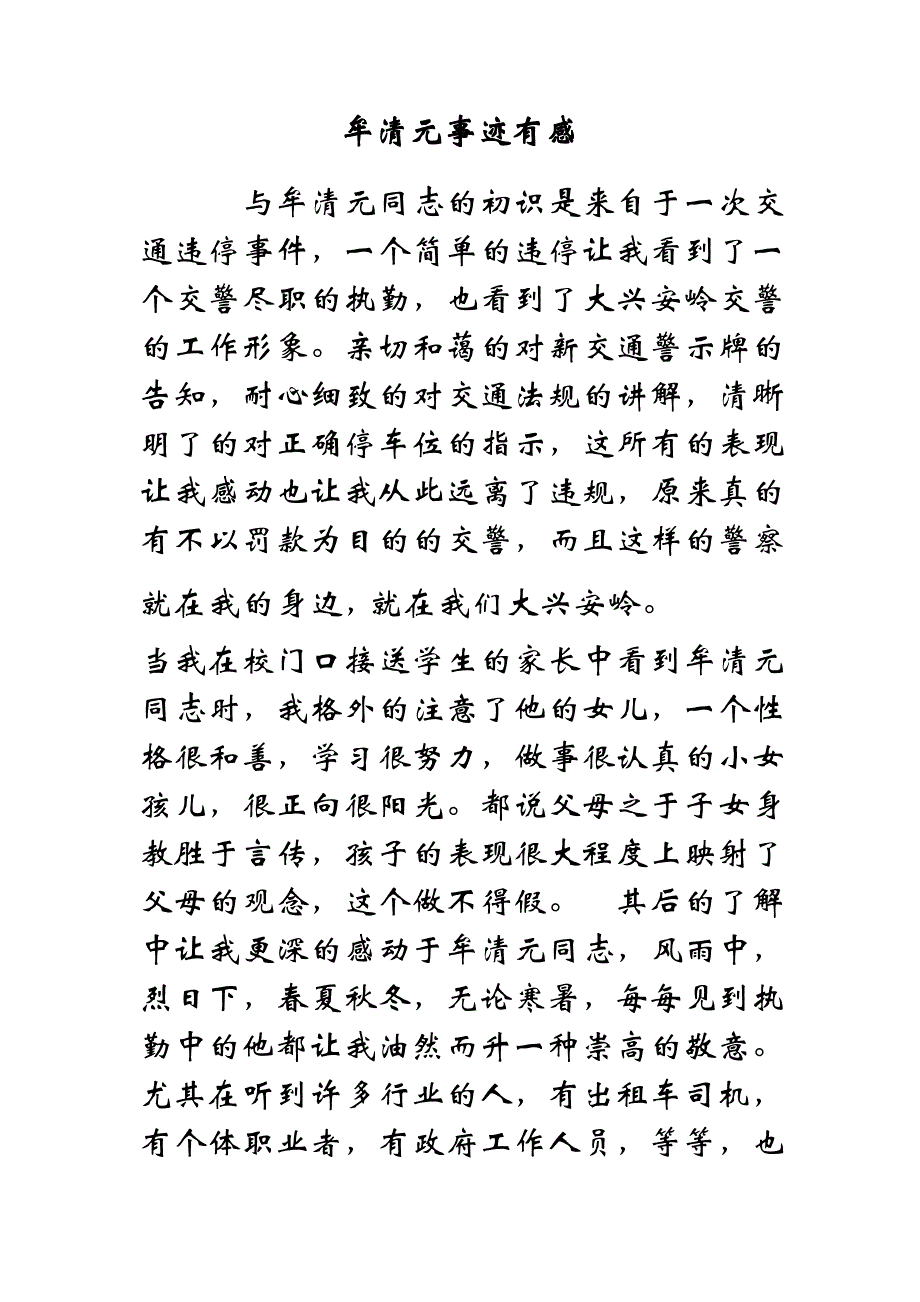 牟清元事迹有感
与牟清元同志的初识是来自于一次交
通违停事件，一个简单的违停让我看到了一
个交警尽职的执勤，也看到了大兴安岭交警
的工作形象。亲切和蔼的对新交通警示牌的
告知，耐心细致的对交通法规的讲解，清晰
明了的对正确停车位的指示，这所有的表现
让我感动也让我从此远离了违规，原来真的
有不以罚款为目的的交警，而且这样的警察
就在我的身边，就在我们大兴安岭。
当我在校门口接送学生的家长中看到牟清元
同志时，我格外的注意了他的女儿，一个性
格很和善，学习很努力，做事很认真的小女
孩儿，很正向很阳光。都说父母之于子女身
教胜于言传，孩子的表现很大程度上映射了
父母的观念，这个做不得假。　其后的了解
中让我更深的感动于牟清元同志，风雨中，
烈日下，春夏秋冬，无论寒暑，每每见到执
勤中的他都让我油然而升一种崇高的敬意。
尤其在听到许多行业的人，有出租车司机，
有个体职业者，有政府工作人员，等等，也